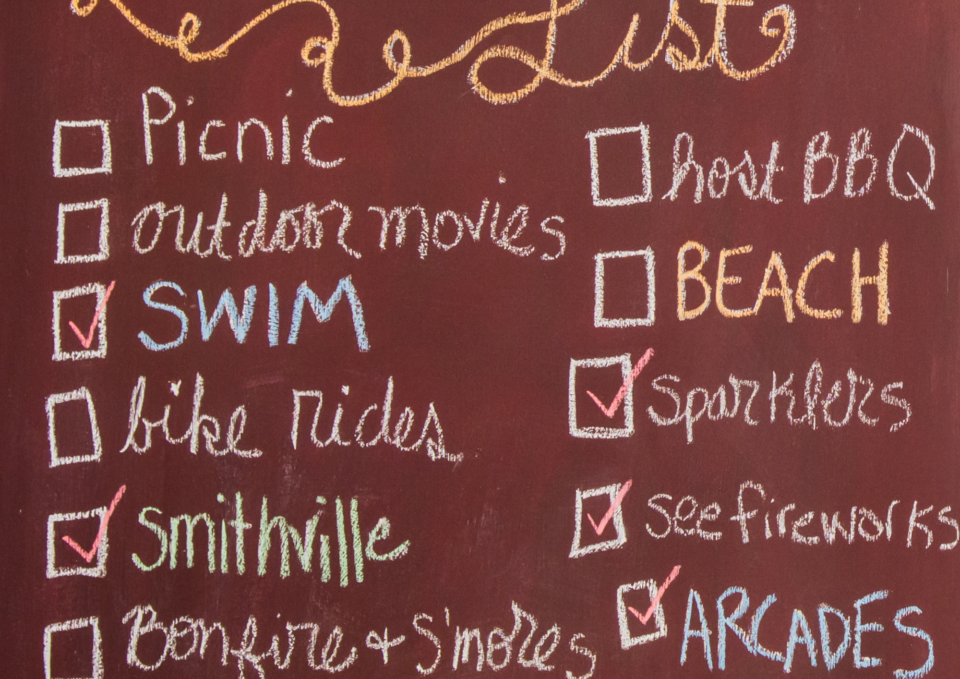 List
Picnic
outdoor movies
SWIM
bike rides
Smithville
Bonfire + S'mores
host BBQ
BEACH
sparklers
see fireworks
ARCADES